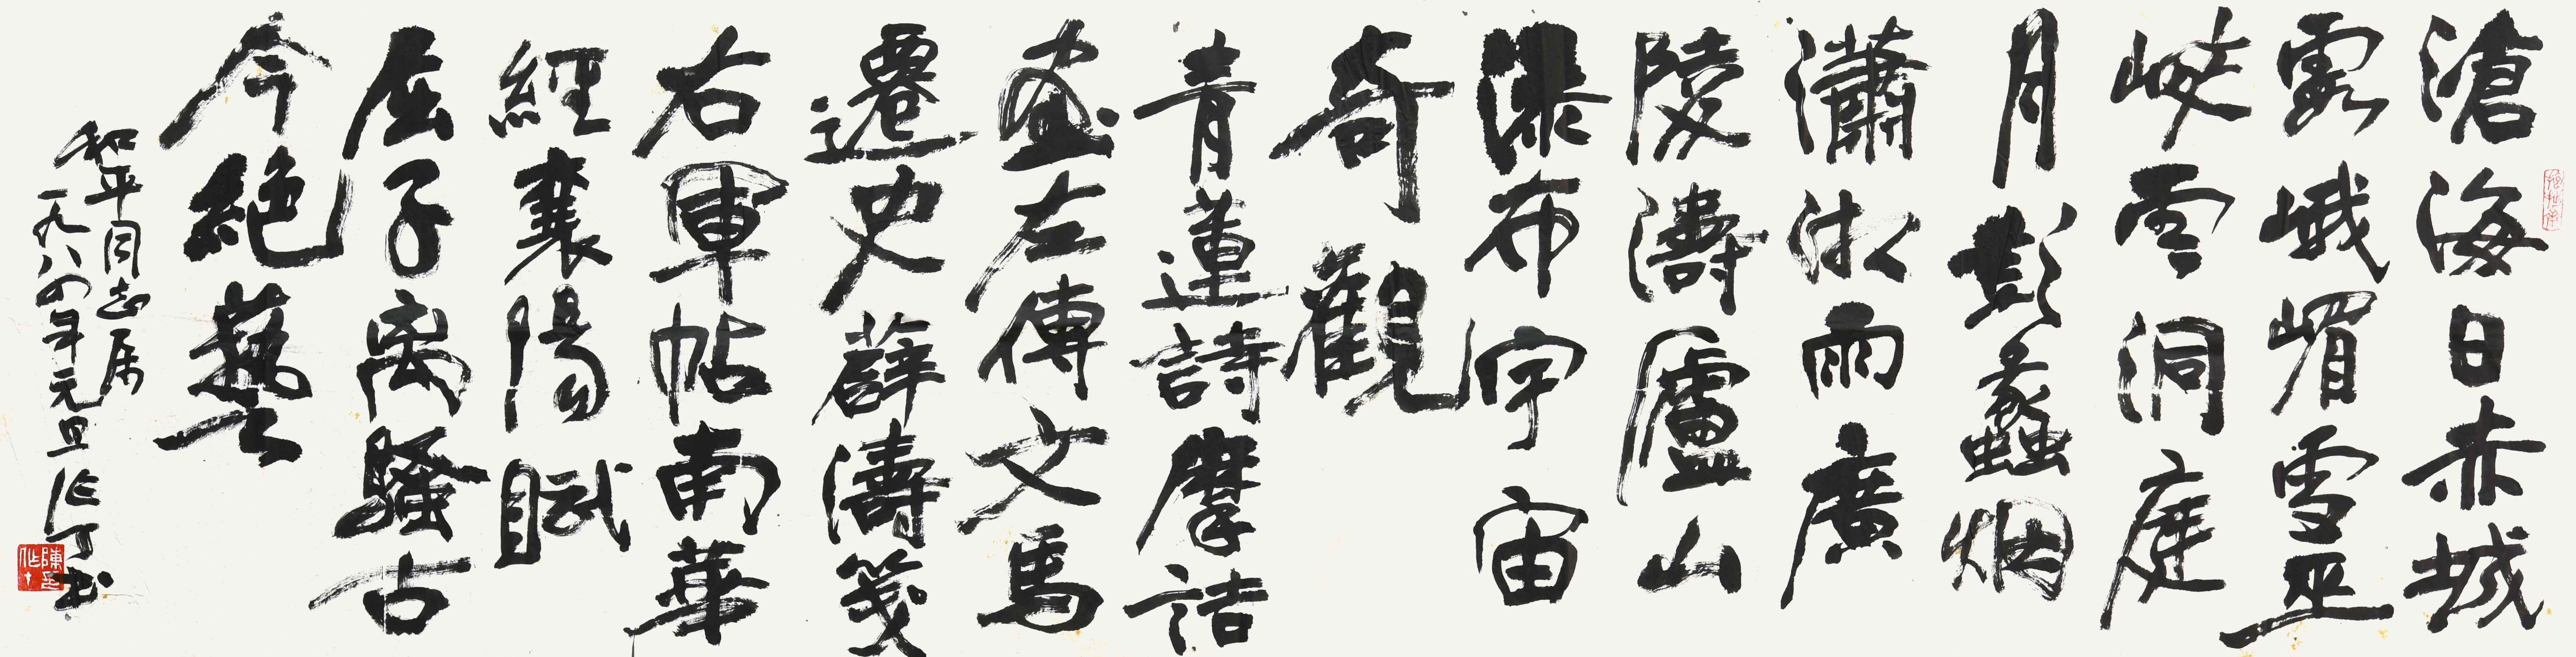 滄海日赤城
霞峨嵋雪巫
峽雲洞庭
月彭蠡烟
瀟湘雨廣
陵濤廬山
瀑布宇宙
奇觀
青蓮詩摩詰
畫左傳文馬
遷史薛濤箋
右軍帖南華
經襄陽賦
屈子离騷古
今絶藝
和平同志属
一九八四年元旦作丁书
陳印作丁